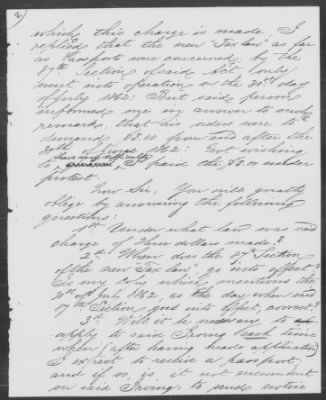 2)
which this charge is made I
replied that the new "Tax law" as far
as Passports were concerned, by the
87th Section of said Act only
went into operation on the 30th day
of July 1862: But said person
informed me in answer to such
remark, that his orders were to
demand $3.00 from and after the
30th of June 1862: But wishing
to I paid the $3.00 under
protest.
Now Sir, You will greatly
oblige by answering the following
questions:
1st Under what law was said
charge of three dollars made?
2d When does the 87th Section
of the new "Tax law" go into effect?
Is my Copy which mentions the
30th of July 1862, as the day when said
87th Section goes into effect, correct?
3d Will it be to
apply to said Irving each time
when (after having made application)
I expect to receive a passport,
and if so, is it not incumbent
on said Irving, to send notice